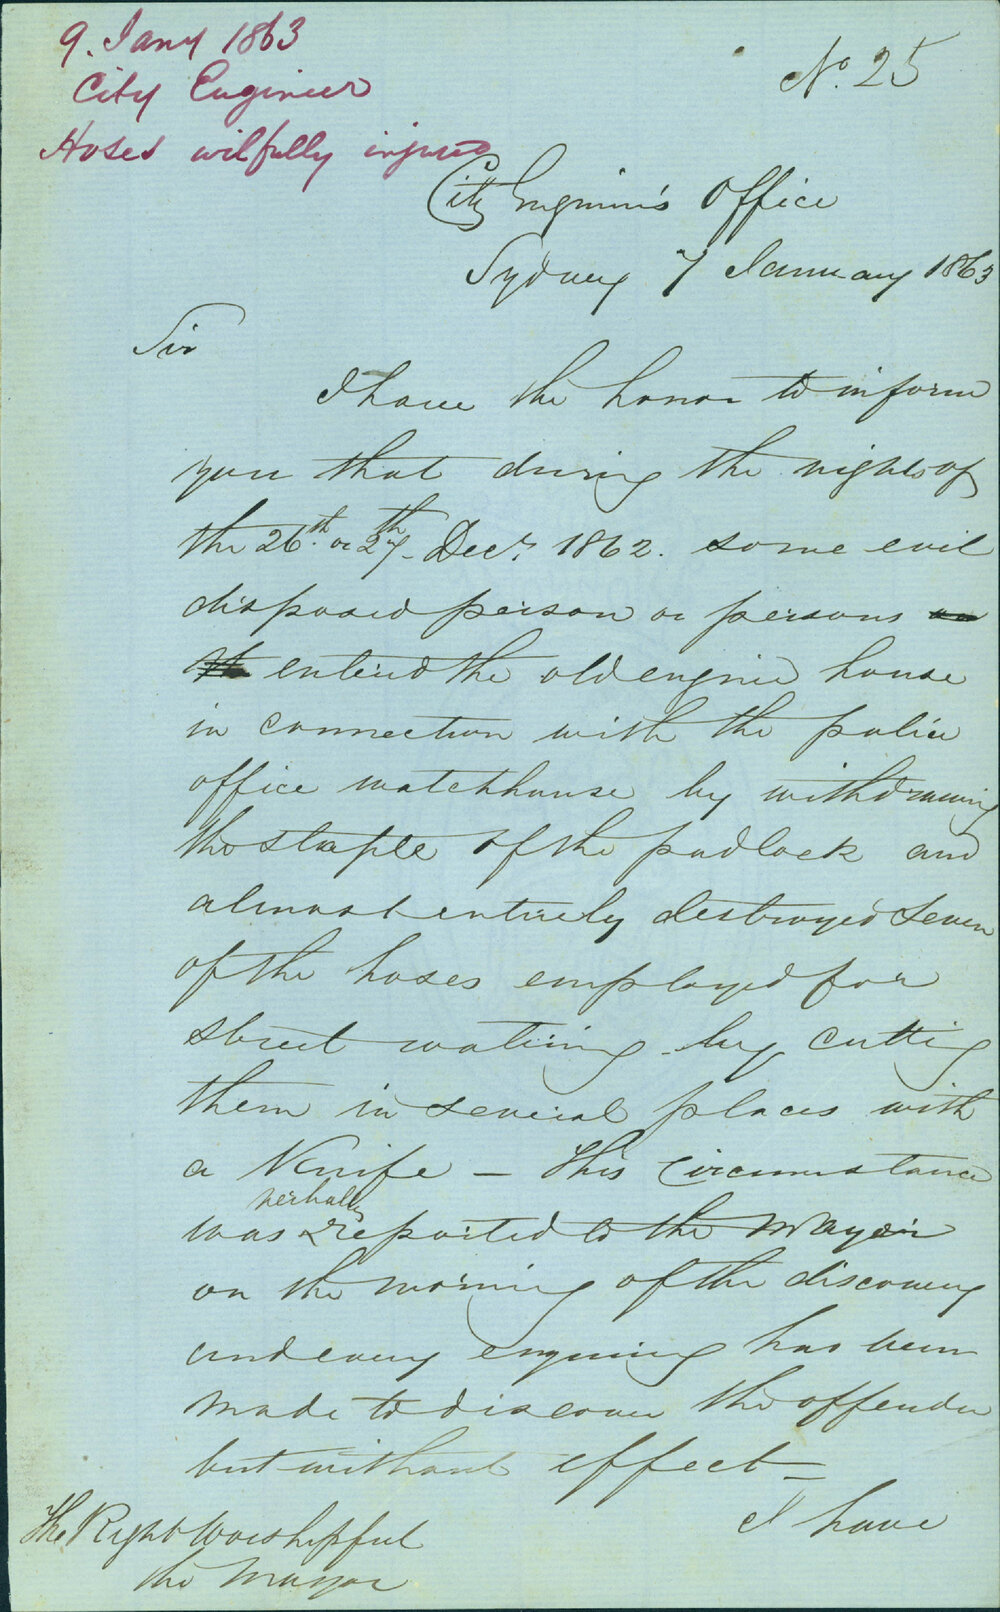 9. Jany 1863
City Engineer
Hoses wilfully injured
No. 25
City Engineer's Office
Sydney 7 January 1863
Sir
I have the honor to inform
you that during the nights of
the 26th. or 27th. Decr. 1862. some evil
disposed person or persons
entered the old engine house
in connection with the police
office watchhouse by withdrawing
the staple of the padlock and
almost entirely destroyed seven
of the hoses employed for
street watering by cutting
them in several places with
a Knife — This circumstance
was verbally reported to the Mayor
on the morning of the discovery
and every enquiry has been
made to discover the offender
but without effect —
I have
The Right Worshipful
the Mayor